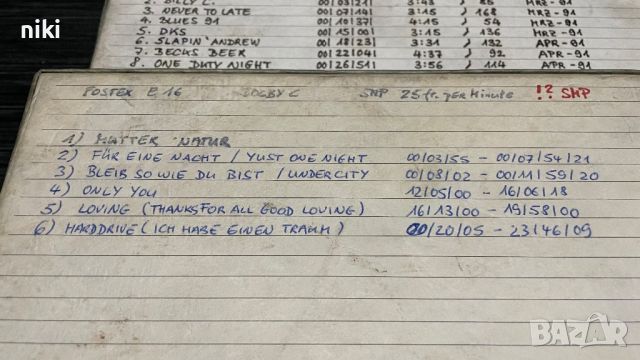 niki
2. BILLY C. 00|03|21| 3:43 ) 85 MRZ-91
3. NEVER TO LATE 00|07|14| 3:15 ) 168 MRZ-91
4. BLUES 91 00|10|37| 4:15 ) 54 MRZ-91
5. DKS 00|15|00| 3:15 ) 136 APR-91
6. SLAPIN' ANDREW 00|18|23| 3:31 ) 132 APR-91
7. BECKS BEER 00|22|04| 4:37 ) 92 APR-91
8. ONE DUTY NIGHT 00|26|51| 3:56 ) 114 APR-91
FOSTEX E 16 DOLBY C SMP 25 fr. per Minute !? SMP
1) MUTTER NATUR
2) FÜR EINE NACHT / YUST ONE NIGHT 00/03/55 - 00/07/54/21
3) BLEIB SO WIE DU BIST / UNDERCITY 00/08/02 - 00/11/59/20
4) ONLY YOU 12/05/00 - 16/06/18
5) LOVING (THANKS FOR ALL GOOD LOVING) 16/13/00 - 19/58/00
6) HARDDRIVE (ICH HABE EINEN TRAUM) 00/20/05 - 23/46/09
BAZAR